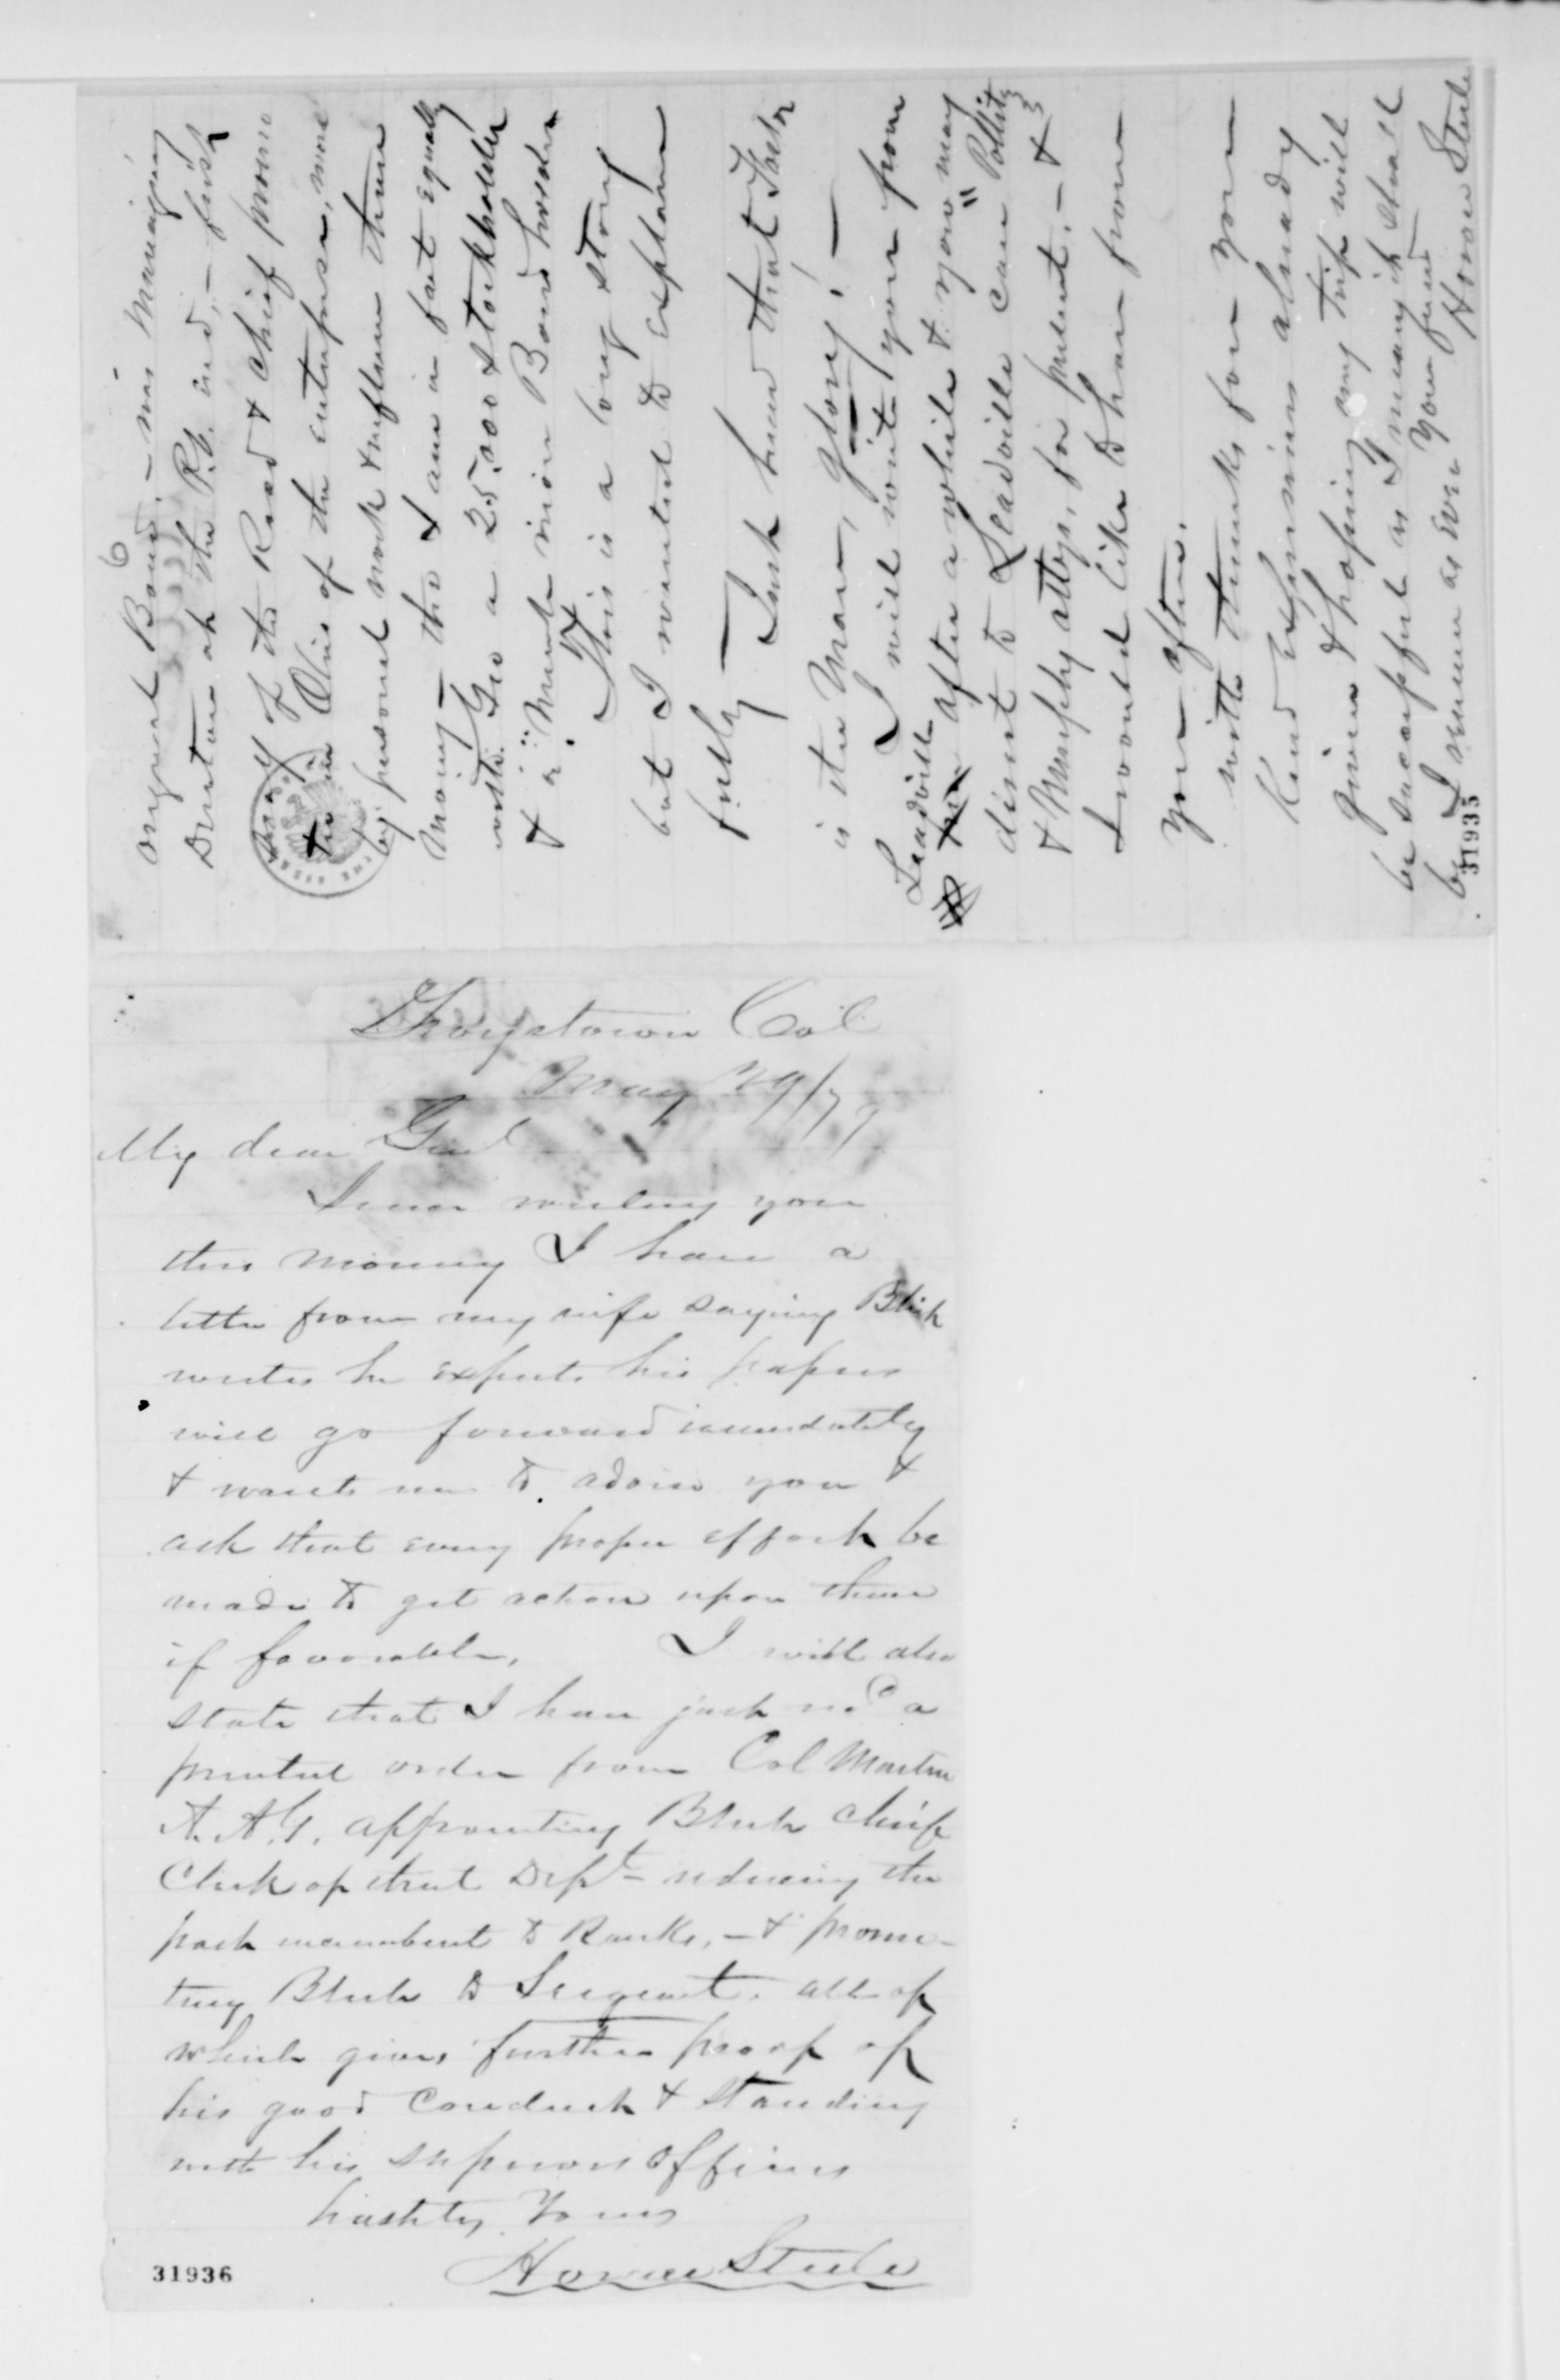 6
original Bond, — was Managing
Director at the R.R. end, — first
of the Road & chief prom
two in Ohio of the enterprise, more
by personal work & influence than
money — tho I am in fact equally
with Geo a 25,000 stockholder
& a " " more Bond holder
This is a long story
but I wanted to explain
fully — Just heard that Foster
is the Man, glory! —
I will write you from
Leadville after a while & you may
direct to Leadville care "Pollitz
& Murphy attys, for present. — &
I would like to hear from
you often.
with thanks for your
Kind expressions already
given & hoping my trip will
be successful as I mean it shall
be I remain as ever Your friend
Horace Steele
31935
Georgetown Col
May 29/79
My dear Genl
Since writing you
this morning I have a
letter from my wife saying Blick
writes he expects his papers
will go forward immediately
& wants me to advise you &
ask that every proper effort be
made to get action upon them
if favorable, I will also
state that I have just recd a
printed order from Col Martin
A.A.G. appointing Blick chief
Clerk of that Dept — reducing the
past incumbent to Ranks, — & promo-
ting Blick to Sergeant. all of
which gives further proof of
his good Conduct & standing
with his superior officers
hastily Yours
Horace Steele
31936